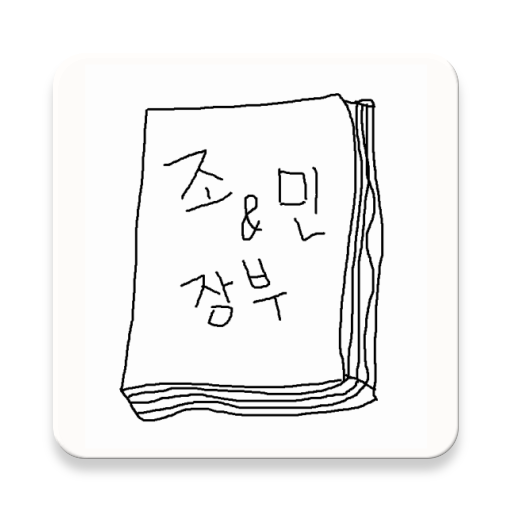 조 & 민
장부